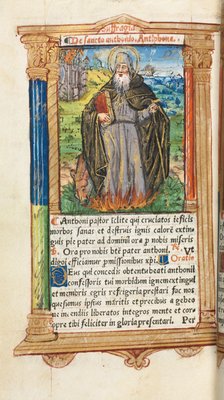 Suffragia.
De sancto anthonio. Antiphona.
Anthoni pastor īclite qui cruciatos reficis
morbos sanas et destruis ignis calorē extin
guis pie pater ad dominū ora p nobis miseris
Ora pro nobis btē pater anthoni. Ut
efficiamur pmissionibus xpi. Oratio
Deus qui concedis obtentu beati anthonii
cōfessoris tui morbidum ignem ext ingui
et membris egris refrigeria prestari fac nos
quesumus ipsius māritis et precibus a gehēne
ne incendiis liberatos integros mente et cor
pore tibi feliciter in gloria presentari. Per